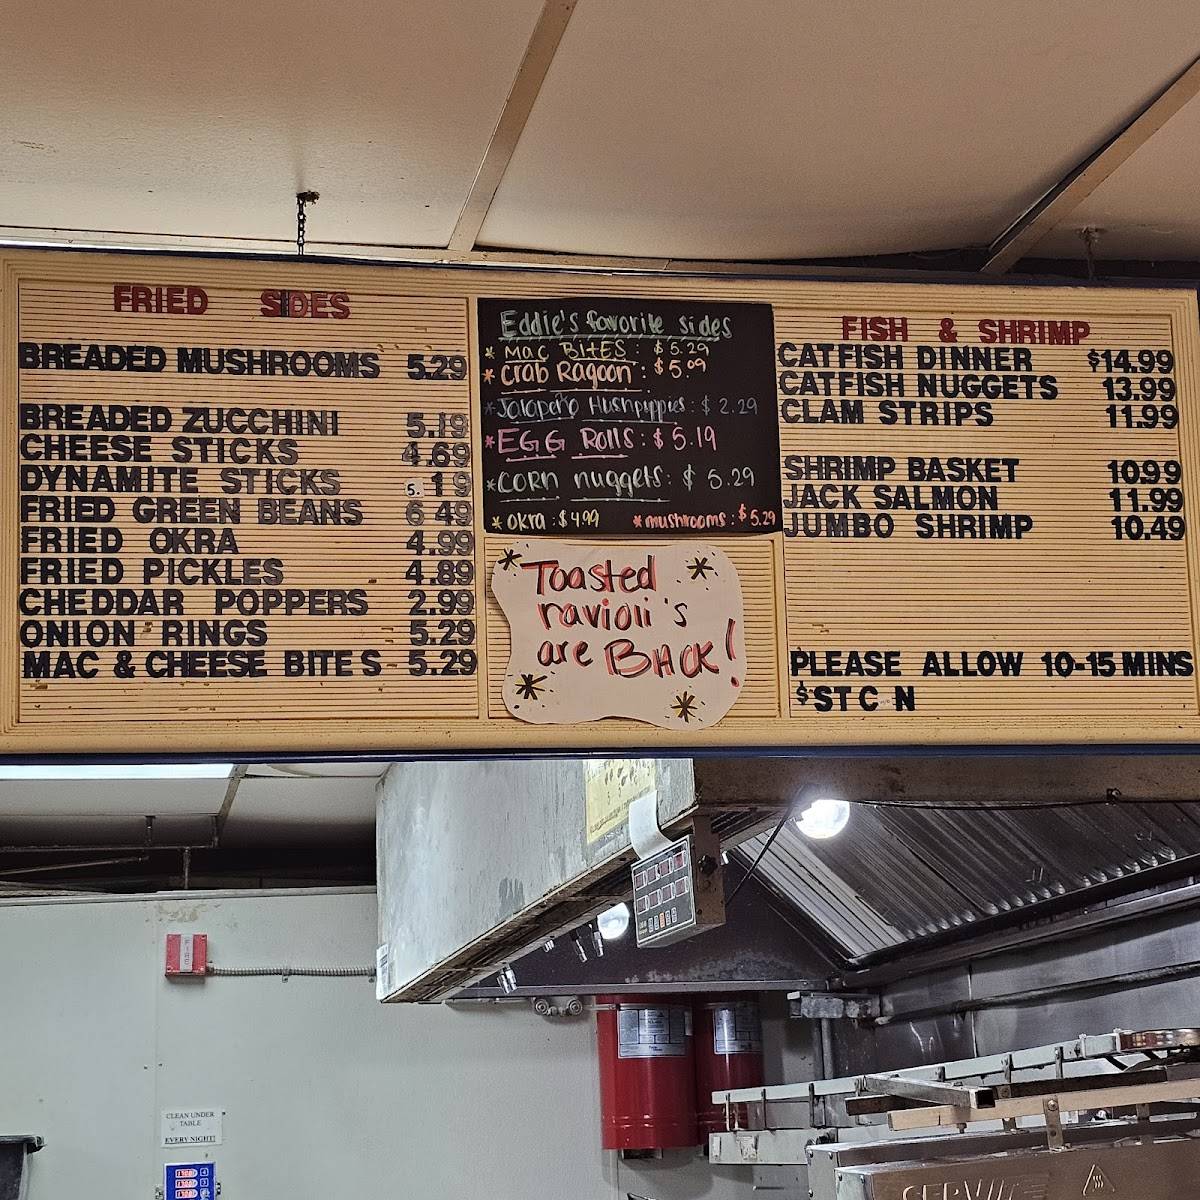 FRIED SIDES
BREADED MUSHROOMS 5.29
BREADED ZUCCHINI 5.19
CHEESE STICKS 4.69
DYNAMITE STICKS 5.19
FRIED GREEN BEANS 6 49
FRIED OKRA 4.99
FRIED PICKLES 4.89
CHEDDAR POPPERS 2.99
ONION RINGS 5.29
MAC & CHEESE BITES 5.29
Eddie's favorite sides
* Mac BITES : $5.29
* Crab Ragoon : $5.09
* Jalapeño Hushpuppies : $2.29
* EGG Rolls : $5.19
* Corn nuggets : $5.29
* okra : $4.99 * mushrooms : $5.29
Toasted
ravioli's
are BACK!
FISH & SHRIMP
CATFISH DINNER $14.99
CATFISH NUGGETS 13.99
CLAM STRIPS 11.99
SHRIMP BASKET 10.99
JACK SALMON 11.99
JUMBO SHRIMP 10.49
PLEASE ALLOW 10-15 MINS
$ST C N
FIRE
CLEAN UNDER
TABLE
EVERY NIGHT!